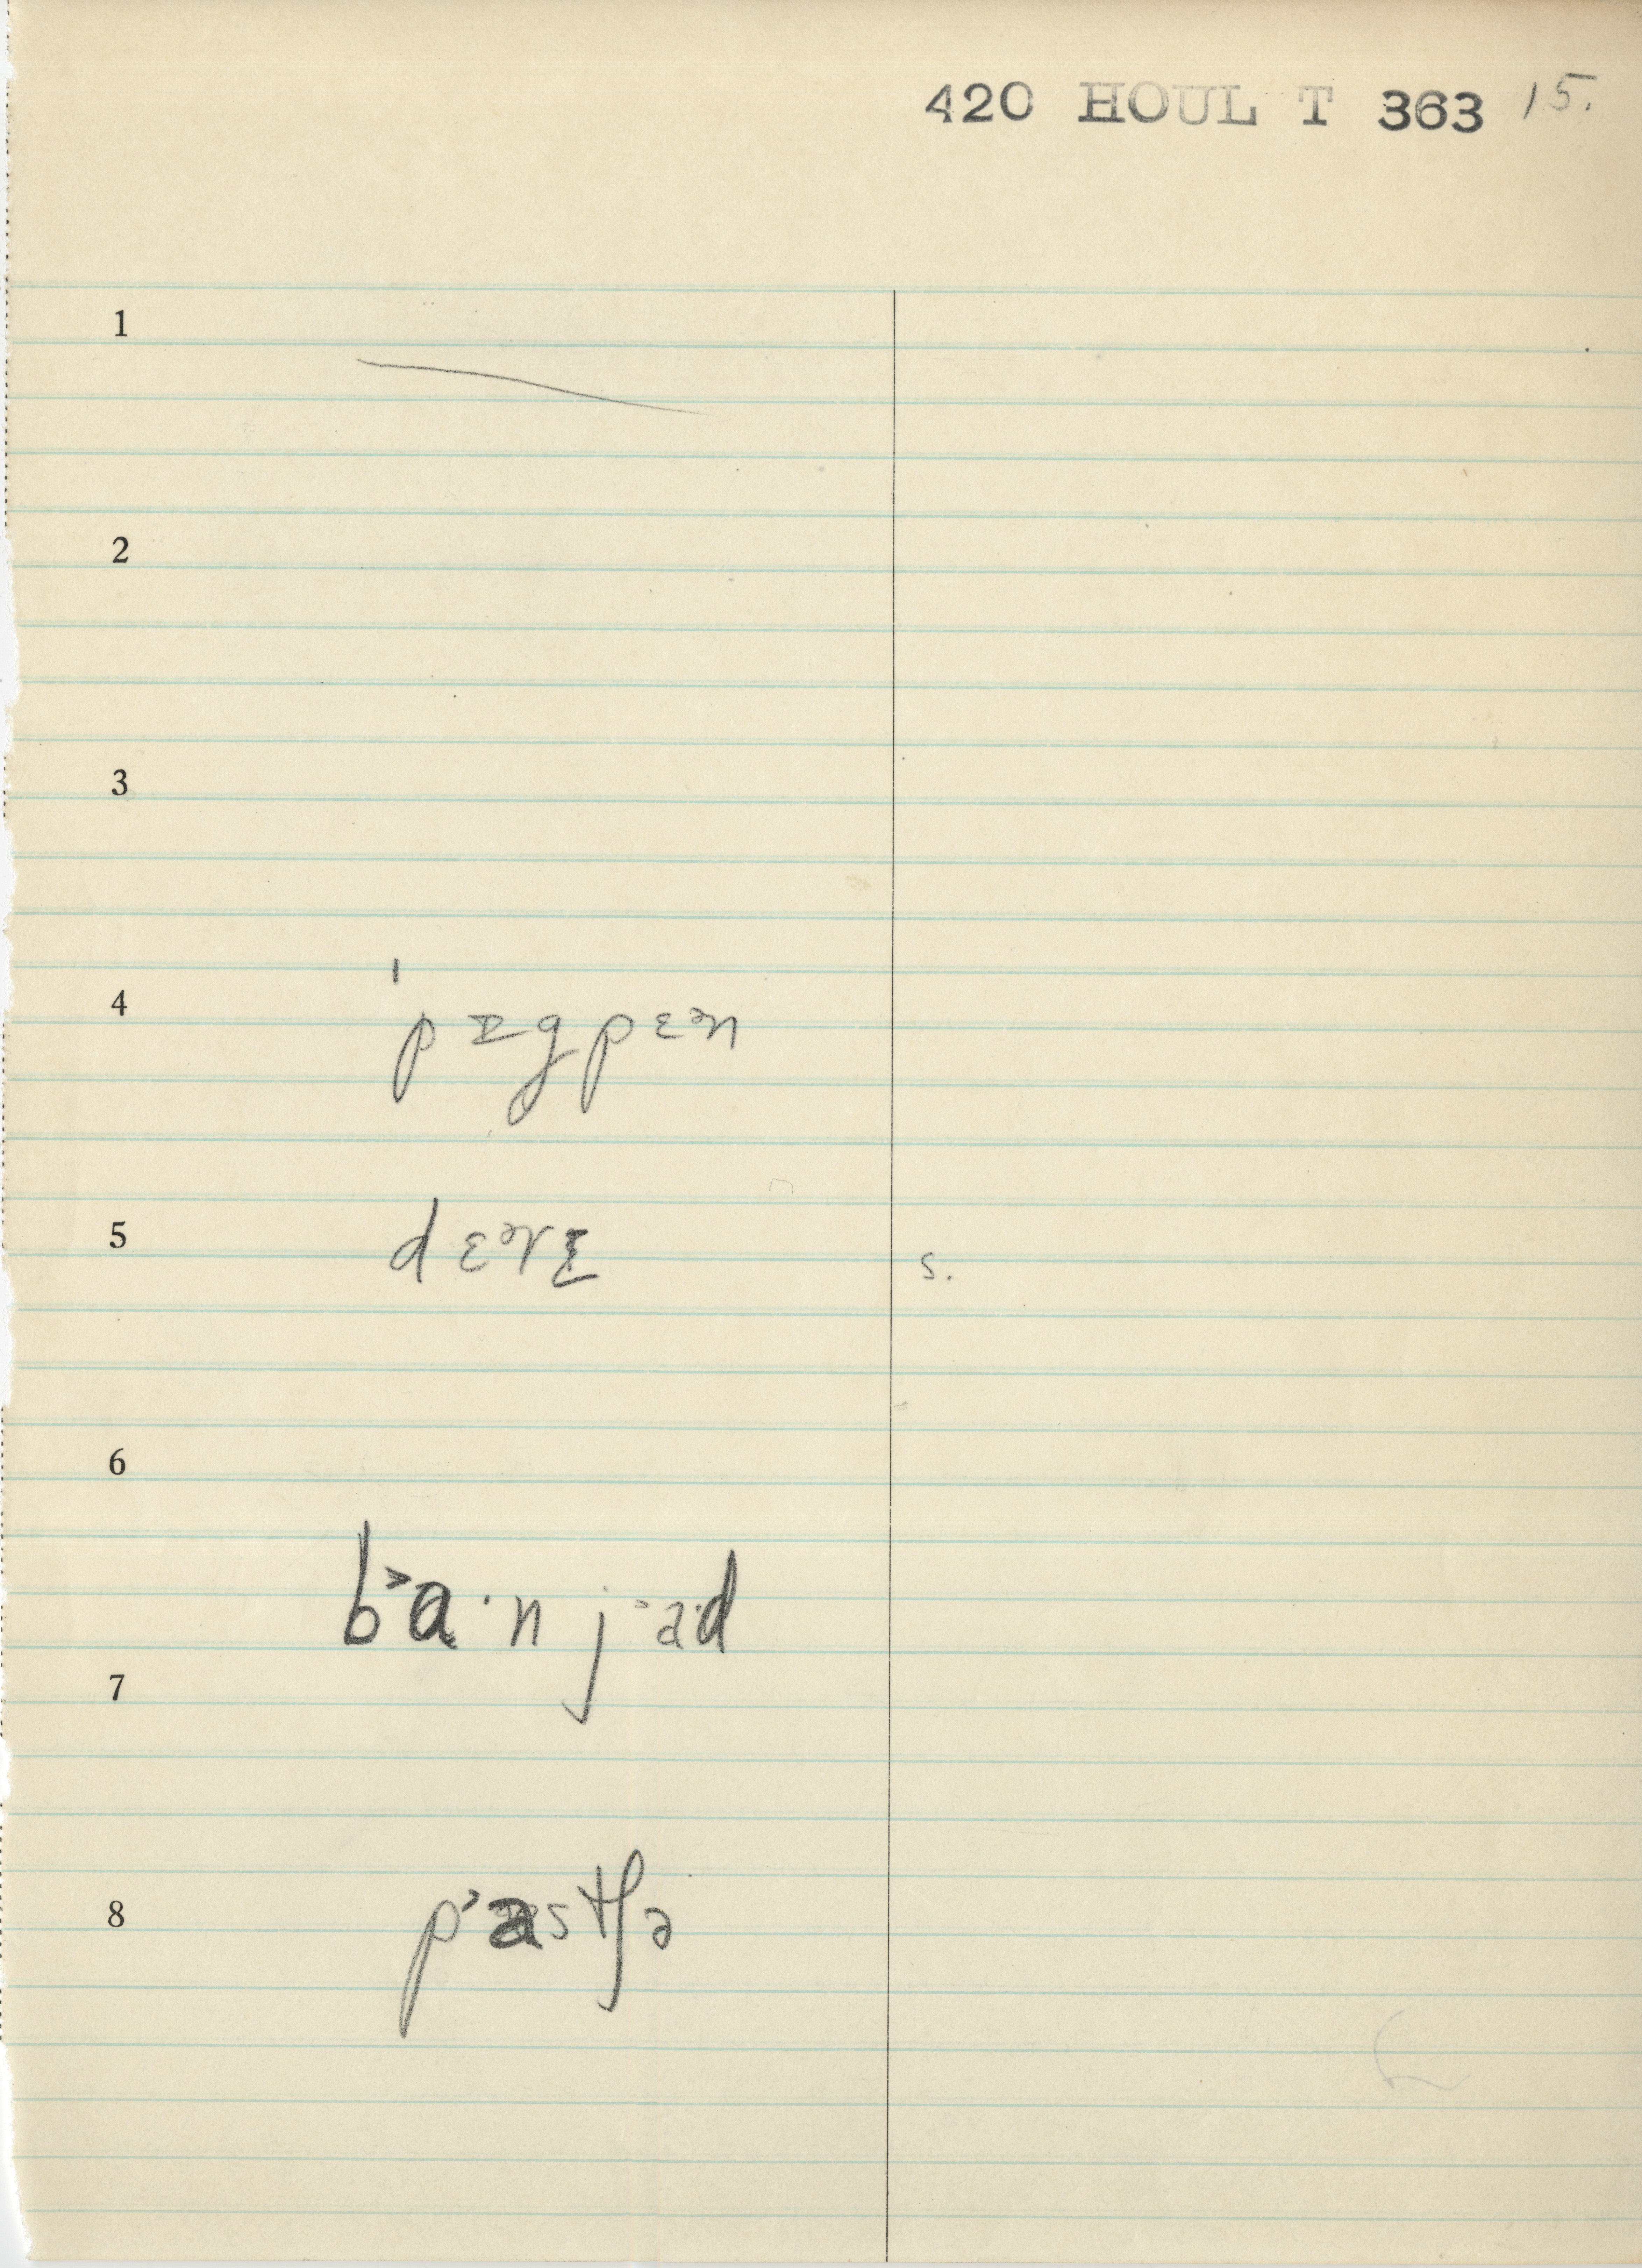 420 HOUL T 363 15.
1
2
3
4 ˈpɪgpɛᵊn
5 dɛᵊrɪ s.
6
bᵊa·n j ad
7
8 p˃astʃə